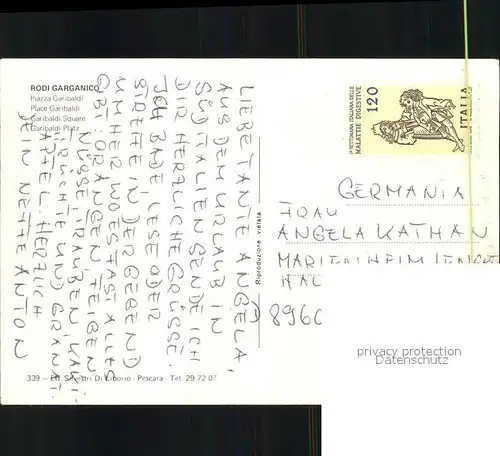 RODI GARGANICO
Piazza Garibaldi
Place Garibaldi
Garibaldi Square
Garibaldi Platz
LIEBE TANTE ANGELA,
AUS DEM URLAUB IN
SÜDITALIEN SENDE ICH
DIR HERZLICHE GRÜSSE.
ICH BADE LESE ODER
STREIFE IN DER GEGEND
UMHER WO ES FAST ALLES
GIBT: ORANGEN FEIGEN
NÜSSE TRAUBEN
FRÜCHTE UND GRANAT-
ÄPFEL. HERZLICH
DEIN NEFFE ANTON
Riproduzione vietata
1ª SETTIMANA ITALIANA DELLE
MALATTIE DIGESTIVE
120
ITALIA
GERMANIA
FRAU
ANGELA KATHAN
MARIENHEIM
896
339 - Ed. Silvestri Di Liborio - Pescara - Tel. 29.72.07
privacy protection
Datenschutz